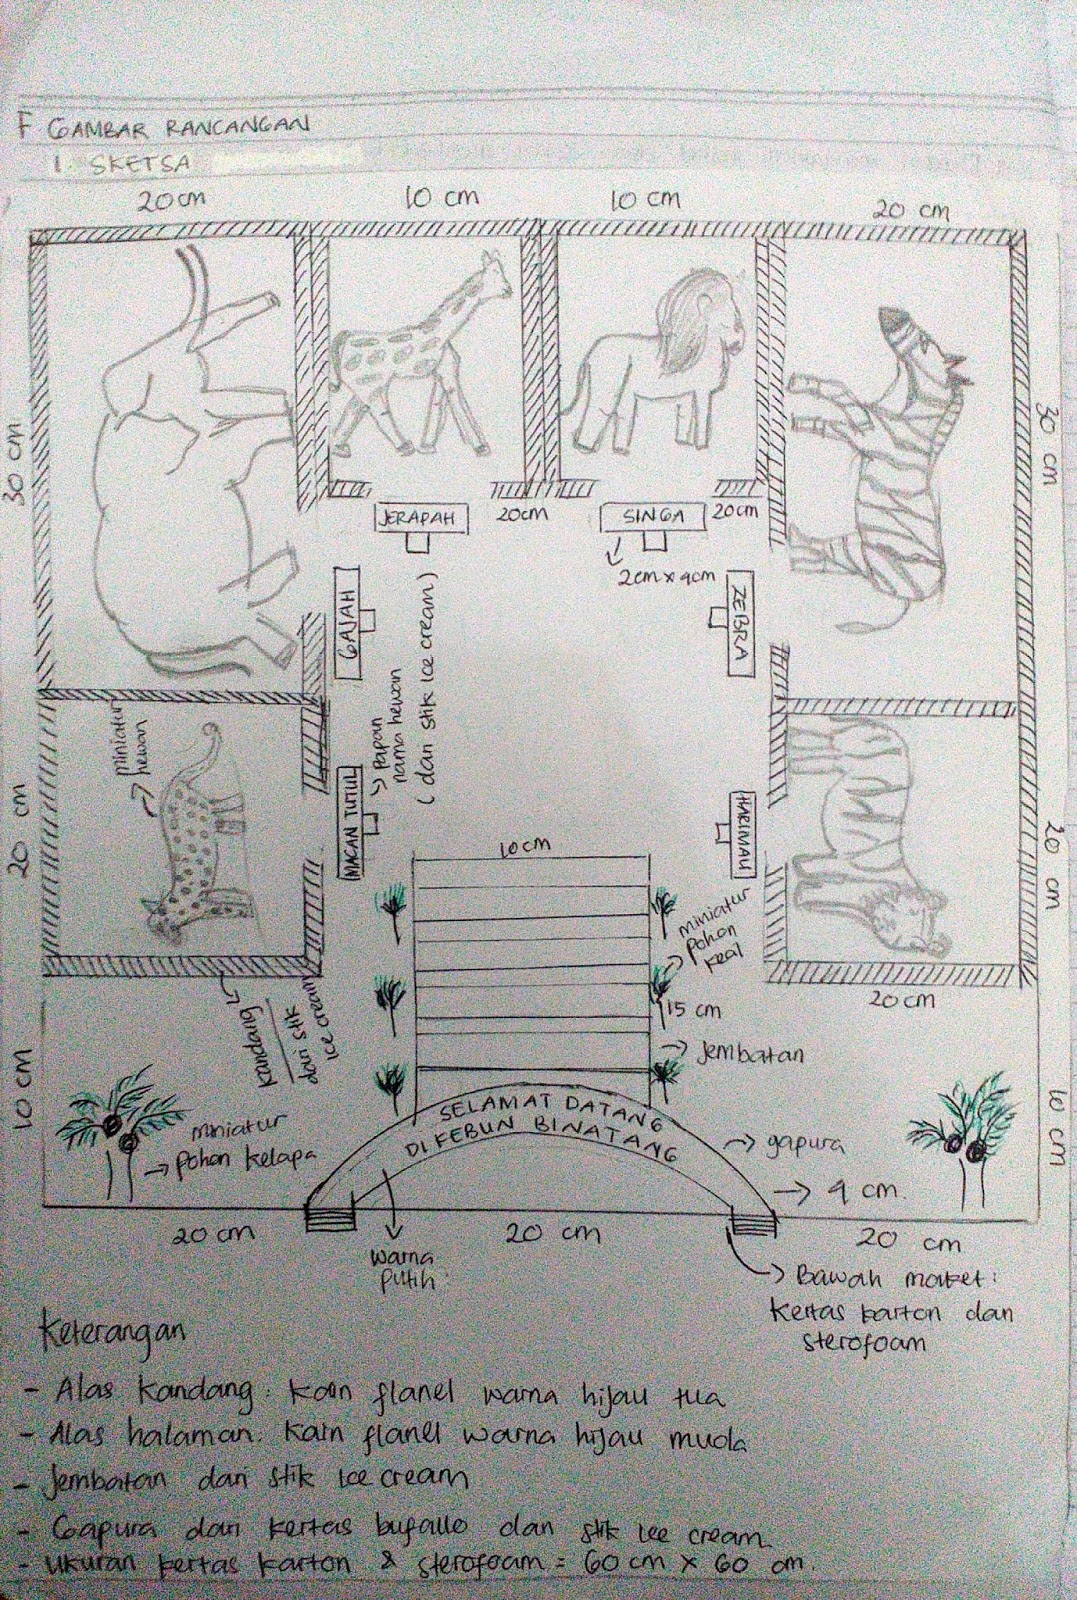 F GAMBAR RANCANGAN
1. SKETSA
20 cm
10 cm
10 cm
20 cm
30 cm
30 cm
JERAPAH
20cm
SINGA
20cm
2cm x 4cm
GAJAH
(dari stik ice cream)
ZEBRA
miniatur
hewan
Papan
nama hewan
20 cm
MACAN TUTUL
HARIMAU
20 cm
10cm
miniatur
pohon
20 cm
15 cm
kandang
dari stik
ice cream
Jembatan
10 cm
10 cm
SELAMAT DATANG
DI KEBUN BINATANG
miniatur
pohon kelapa
gapura
4 cm.
20 cm
20 cm
20 cm
warna
putih
Bawah maket:
kertas karton dan
sterofoam
Keterangan
- Alas kandang: kain flanel warna hijau tua
- Alas halaman: kain flanel warna hijau muda
- Jembatan dari stik ice cream
- Gapura dari kertas bufallo dan stik ice cream.
- ukuran kertas karton & sterofoam = 60 cm x 60 cm.